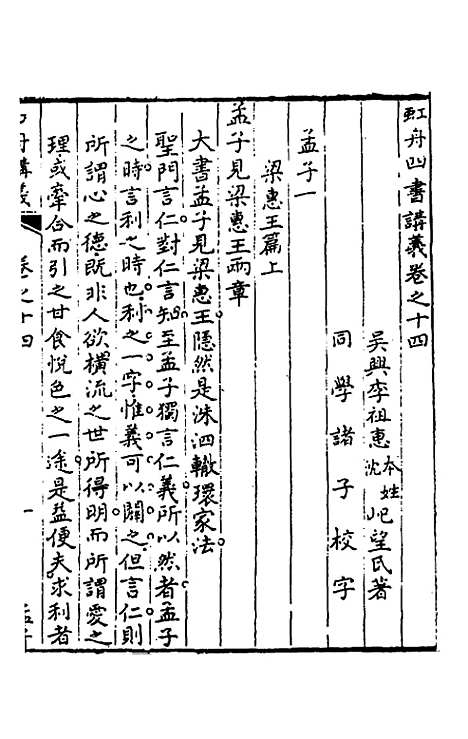 虹舟四書講義卷之十四
吳興李祖惠本姓沈屺望氏著
同學諸子校字
孟子一
梁惠王篇上
孟子見梁惠王兩章
大書孟子見梁惠王隱然是洙泗轍環家法
聖門言仁對仁言知至孟子獨言仁義所以然者孟子
之時言利之時也利之一字惟義可以闢之但言仁則
所謂心之德既非人欲橫流之世所得明而所謂愛之
理或牽合而引之甘食悅色之一途是益便夫求利者
講義 卷之十四 一